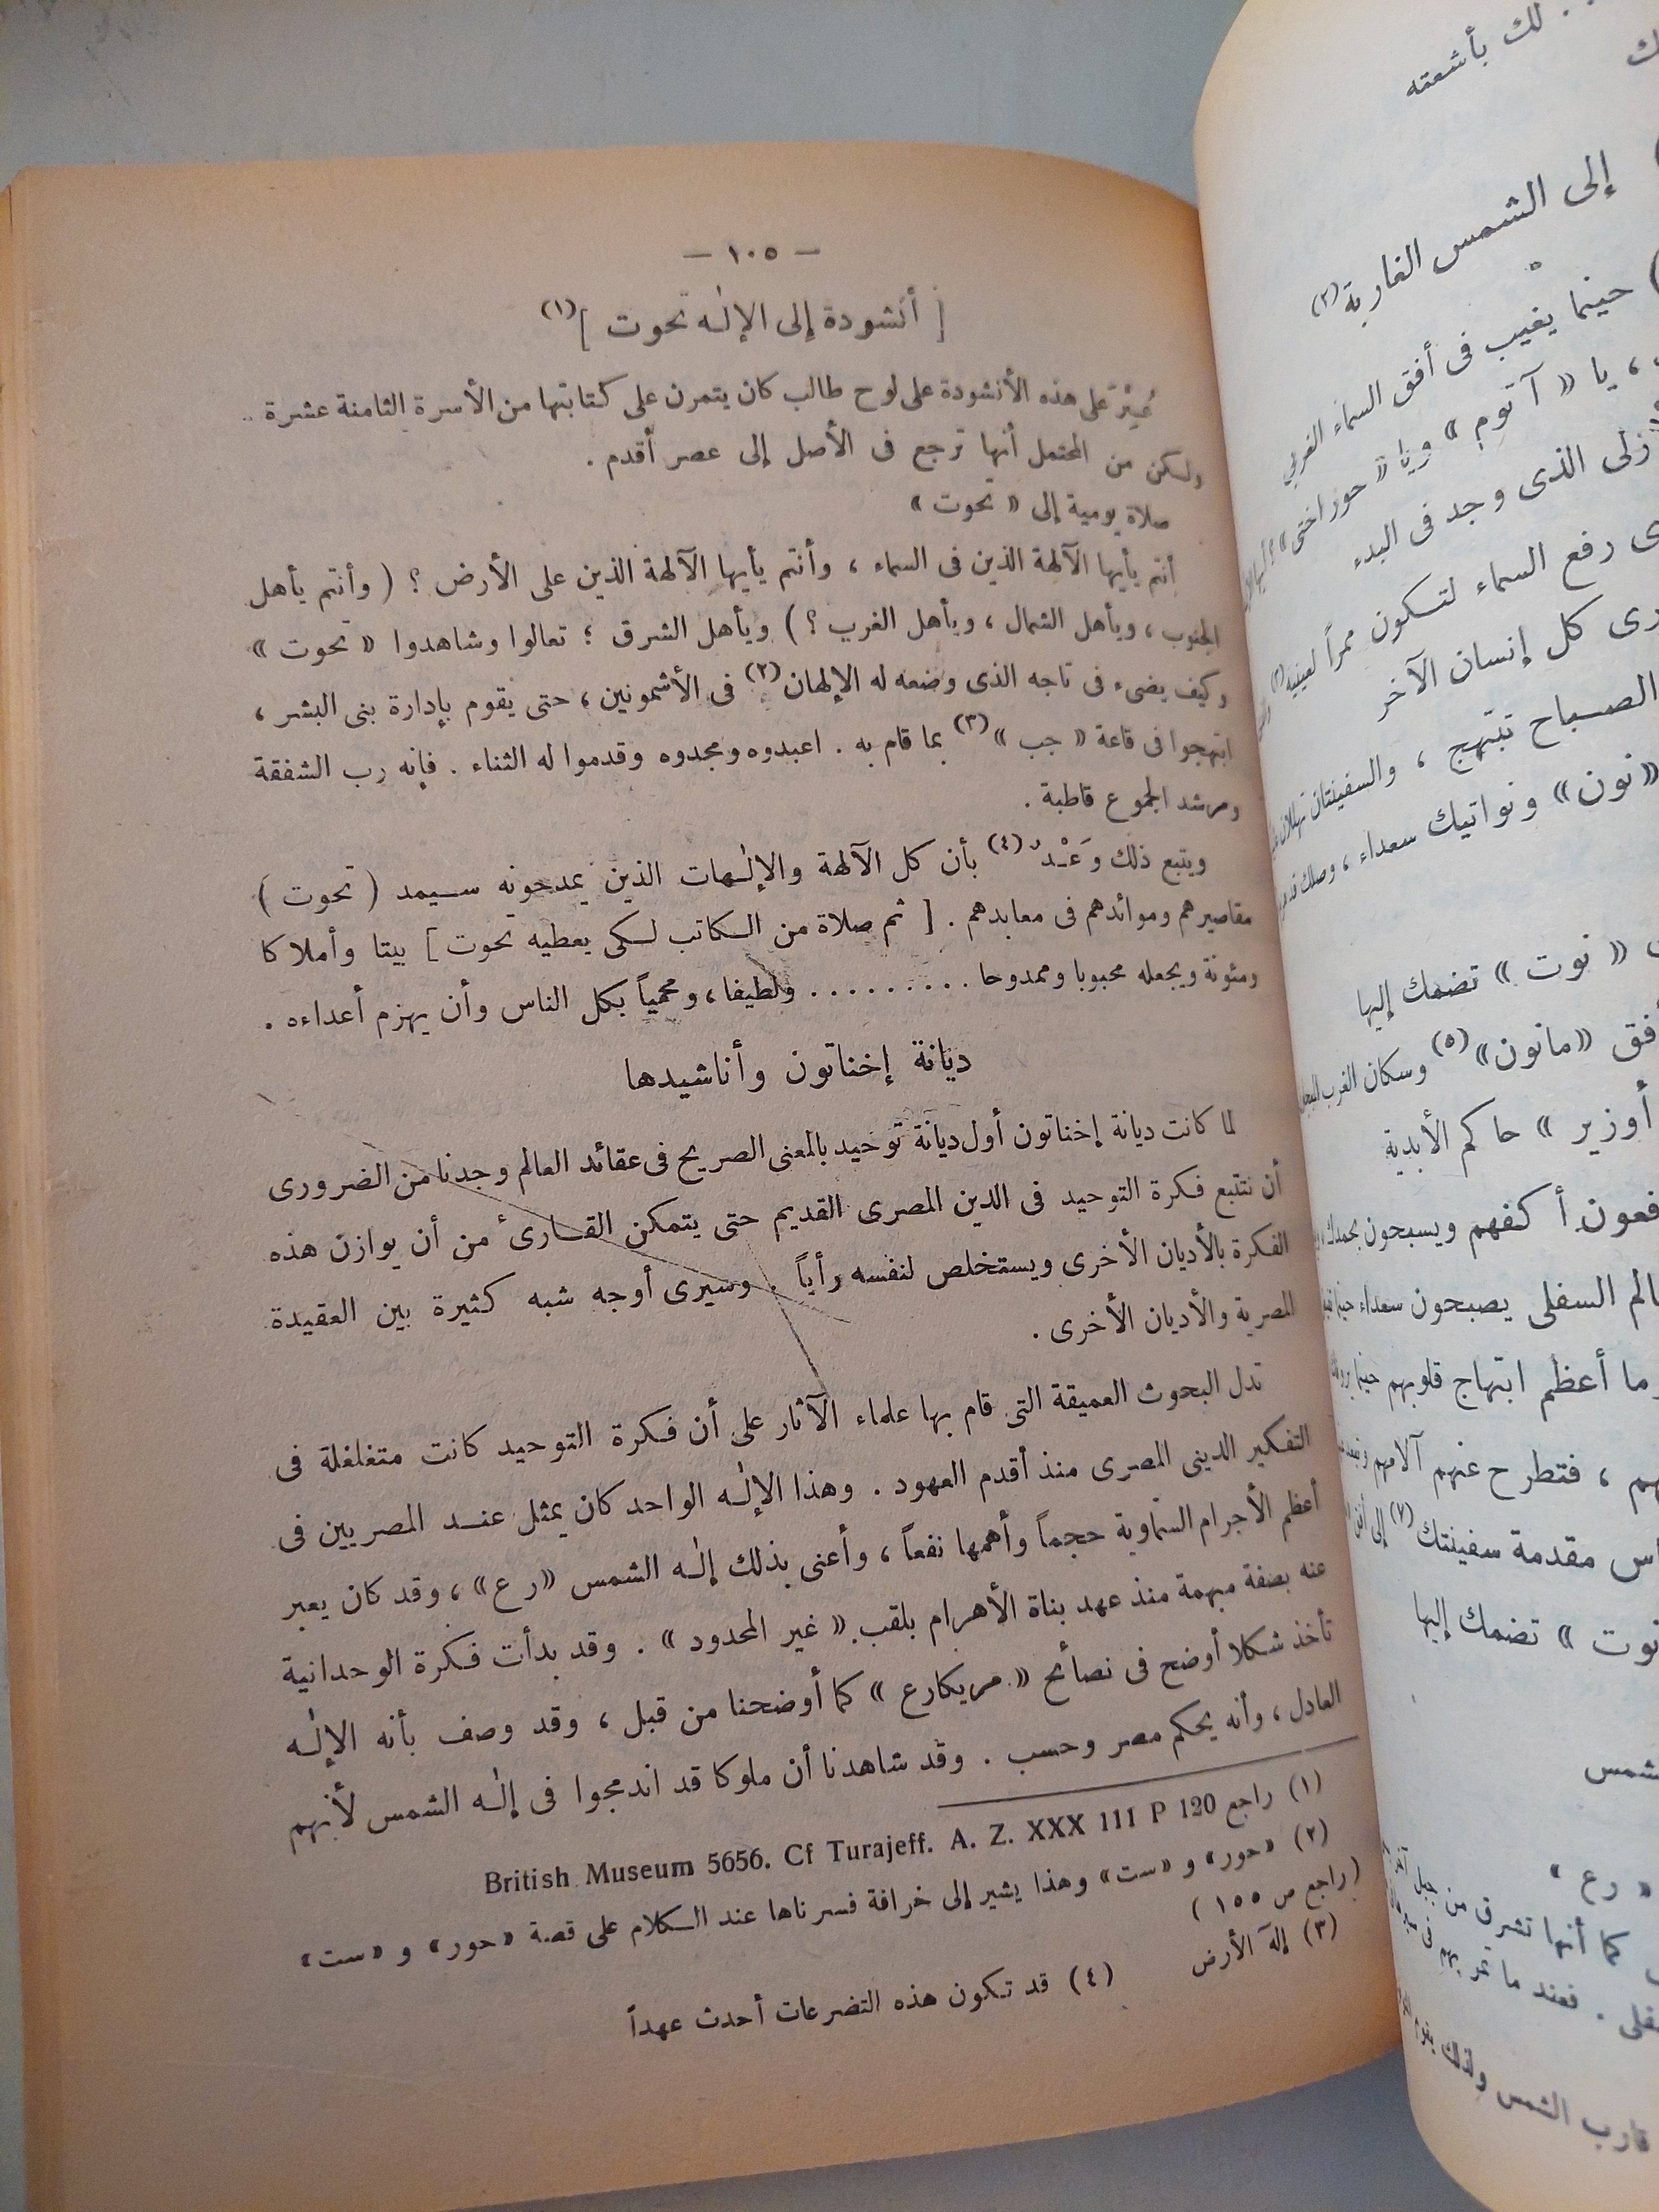 — ١٠٥ —
[ أنشودة إلى الإلٰه تحوت ](١)
عُثِرَ على هذه الأنشودة على لوح طالب كان يتمرن على كتابتها من الأسرة الثامنة عشرة
ولكن من المحتمل أنها ترجع فى الأصل إلى عصر أقدم .
صلاة يومية إلى « تحوت »
أنتم يأيها الآلهة الذين فى السماء ، وأنتم يأيها الآلهة الذين على الأرض ؟ ( وأنتم يأهل
الجنوب ، ويأهل الشمال ، ويأهل الغرب ؟ ) ويأهل الشرق ؛ تعالوا وشاهدوا « تحوت »
وكيف يضىء فى تاجه الذى وضعه له الإلهان(٢) فى الأشمونين ، حتى يقوم بإدارة بنى البشر ،
ابتهجوا فى قاعة « جب »(٣) بما قام به . اعبدوه ومجدوه وقدموا له الثناء . فإنه رب الشفقة
ومرشد الجموع قاطبة .
ويتبع ذلك وَعْدٌ(٤) بأن كل الآلهة والإلٰهات الذين يمدحونه سيمد ( تحوت )
مقاصيرهم وموائدهم فى معابدهم . [ ثم صلاة من الكاتب لكى يعطيه تحوت ] بيتا وأملاكا
ومئونة ويجعله محبوبا وممدوحا . . . . . . . . . ولطيفا ، ومحمياً بكل الناس وأن يهزم أعداءه .
ديانة إخناتون وأناشيدها
لما كانت ديانة إخناتون أول ديانة توحيد بالمعنى الصريح فى عقائد العالم وجدنا من الضرورى
أن نتتبع فكرة التوحيد فى الدين المصرى القديم حتى يتمكن القارئ من أن يوازن هذه
الفكرة بالأديان الأخرى ويستخلص لنفسه رأياً . وسيرى أوجه شبه كثيرة بين العقيدة
المصرية والأديان الأخرى .
تدل البحوث العميقة التى قام بها علماء الآثار على أن فكرة التوحيد كانت متغلغلة فى
التفكير الدينى المصرى منذ أقدم العهود . وهذا الإلٰه الواحد كان يمثل عند المصريين فى
أعظم الأجرام السماوية حجماً وأهمها نفعاً ، وأعنى بذلك إلٰه الشمس « رع » ، وقد كان يعبر
عنه بصفة مبهمة منذ عهد بناة الأهرام بلقب « غير المحدود » . وقد بدأت فكرة الوحدانية
تأخذ شكلا أوضح فى نصائح « مريكارع » كما أوضحنا من قبل ، وقد وصف بأنه الإلٰه
العادل ، وأنه يحكم مصر وحسب . وقد شاهدنا أن ملوكا قد اندمجوا فى إلٰه الشمس لأنهم
(١) راجع British Museum 5656. Cf Turajeff. A. Z. XXX 111 P 120
(٢) « حور » و « ست » وهذا يشير إلى خرافة فسرناها عند الكلام على قصة « حور » و « ست »
( راجع ص ١٥٥ )
(٣) إلٓه الأرض (٤) قد تكون هذه التضرعات أحدث عهداً
لك بأشعته
إلى الشمس الغاربة(٢)
حينما يغيب فى أفق السماء الغربى
يا « آتوم » ويا « حوراختى »
زلى الذى وجد فى البدء
رفع السماء لتكون ممراً لعينيه(٣)
كل إنسان الآخر
الصباح تبتهج ، والسفينتان تهللان
« نون » ونواتيك سعداء ، وصلك
« نوت » تضمك إليها
أفق « مانون »(٥) وسكان الغرب
أوزير » حاكم الأبدية
أكفهم ويسبحون بحمدك
السفلى يصبحون سعداء
وما أعظم ابتهاج قلوبهم حينما
، فتطرح عنهم آلامهم
مقدمة سفينتك(٧) إلى
نوت » تضمك إليها
« رع »
كما أنها تشرق من جبل
. فعند ما تمر بهم فى
قارب الشمس ولذلك يقوم